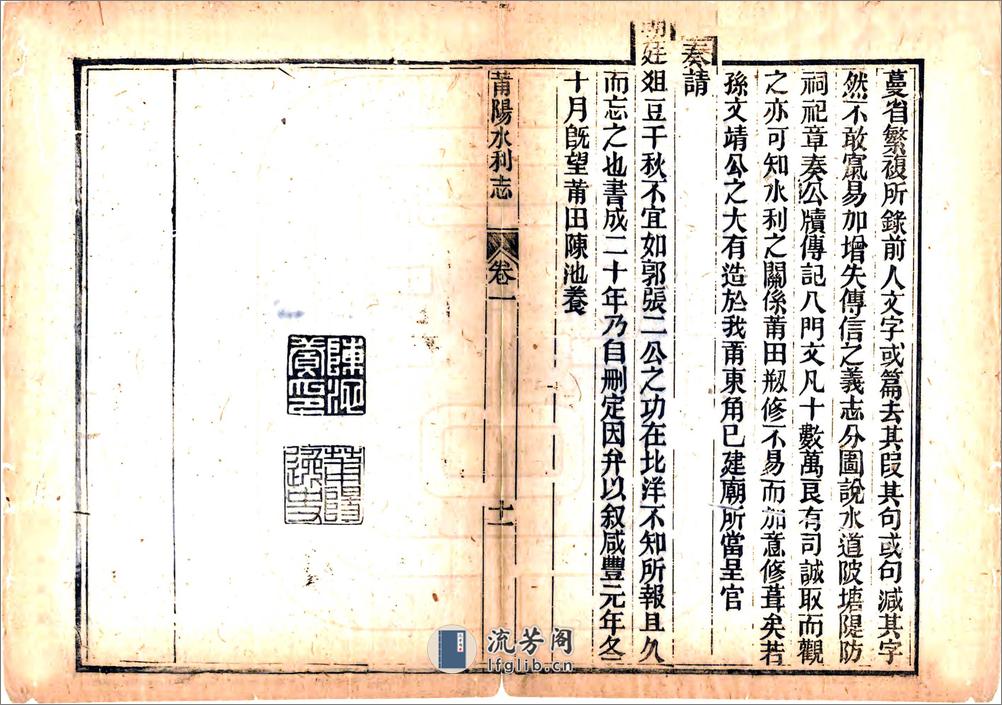 蔓省繁複所錄前人文字或篇去其段其句或句減其字
然不敢竄易加增失傳信之義志分圖說水道陂塘隄防
祠祀章奏公牘傳記八門文凡十數萬良有司誠取而觀
之亦可知水利之關係莆田剏修不易而加意修葺矣若
孫文靖公之大有造於我莆東角已建廟所當呈官
奏請
朝廷俎豆千秋不宜如郭張二公之功在北洋不知所報且久
而忘之也書成二十年乃自刪定因弁以叙咸豐元年冬
十月旣望莆田陳池養
莆陽水利志
卷一
十一
陳池養印
莆陽逸史
流芳阁
lfglib.cn